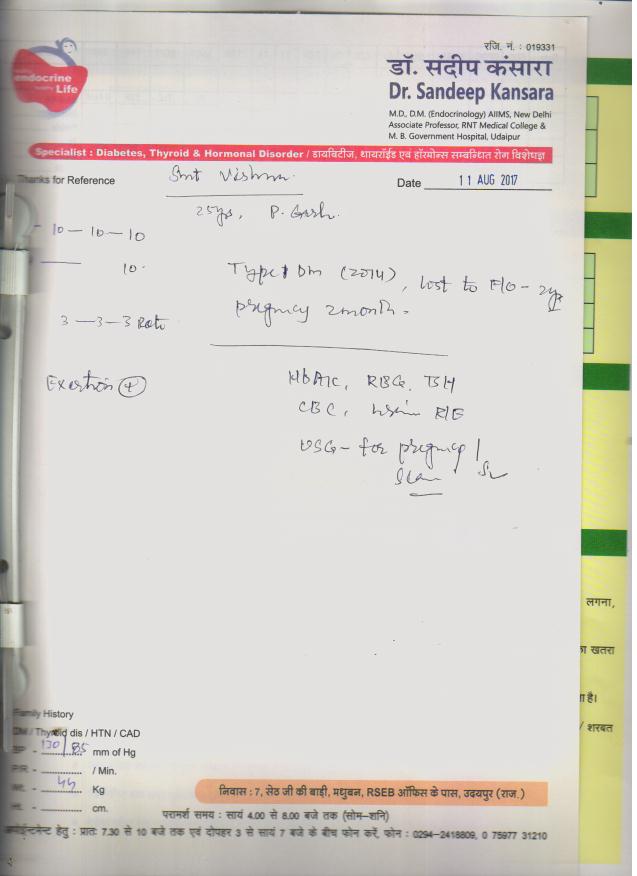 रजि. नं. : 019331
endocrine
Life
डॉ. संदीप कंसारा
Dr. Sandeep Kansara
M.D., D.M. (Endocrinology) AIIMS, New Delhi
Associate Professor, RNT Medical College &
M. B. Government Hospital, Udaipur
Specialist : Diabetes, Thyroid & Hormonal Disorder / डायबिटीज, थायरॉईड एवं हॉरमोन्स सम्बन्धित रोग विशेषज्ञ
Thanks for Reference
Smt
Date 11 AUG 2017
25 yrs,
10 - 10 - 10
10
Type 1 DM (2014), lost to F/O -
pregnancy 2 month
3 - 3 - 3 Roti
Exertion +
HbA1C, RBG, TSH
CBC, R/E
USG - for pregnancy
Scan
लगना,
का खतरा
ता है।
/ शरबत
Family History
DM / Thyroid dis / HTN / CAD
BP - 130/85 mm of Hg
P/R - / Min.
Wt. - 44 Kg
Ht. - cm.
निवास : 7, सेठ जी की बाड़ी, मधुबन, RSEB ऑफिस के पास, उदयपुर (राज.)
परामर्श समय : सायं 4.00 से 8.00 बजे तक (सोम-शनि)
अपोईन्टमेन्ट हेतु : प्रातः 7.30 से 10 बजे तक एवं दोपहर 3 से सायं 7 बजे के बीच फोन करें, फोन : 0294-2418809, 0 75977 31210